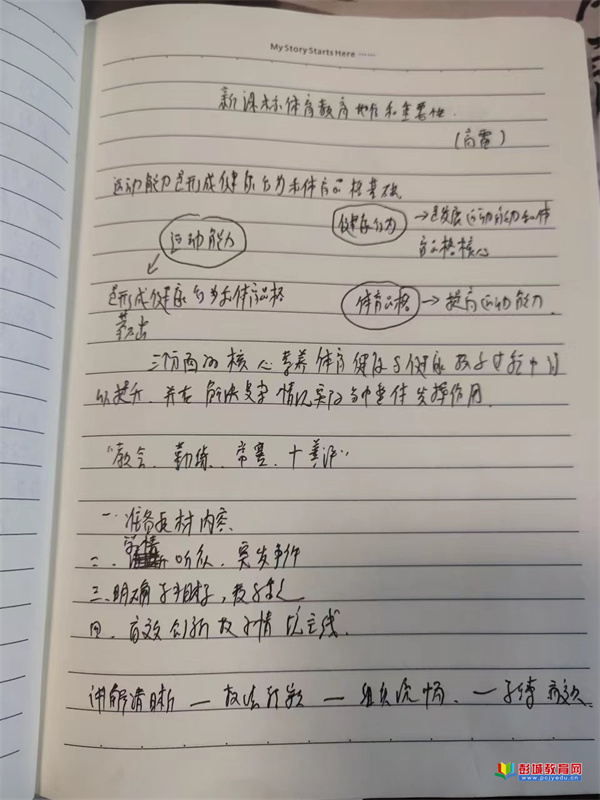 My Story Starts Here ······
新课标体育教育地位和重要性.
(高雷)
运动能力是形成健康行为和体育品格基础
运动能力
健康行为 → 是发展运动能力和体
育品格核心
是形成健康行为和体育品格
基础
体育品格 → 提高运动能力.
三方面的核心素养体育健康与健康教学过程中
以提升.并在解决复杂情境实际当中整体发挥作用.
“教会、勤练、常赛、+善评”
一.准备教材内容.
二、学情 听众、突发事件
三.明确学习目标,
四.高效创新教学情境主线.
讲解清晰 — 教法 — 组织流畅. —
彭城教育网
www.pcjy.edu.cn